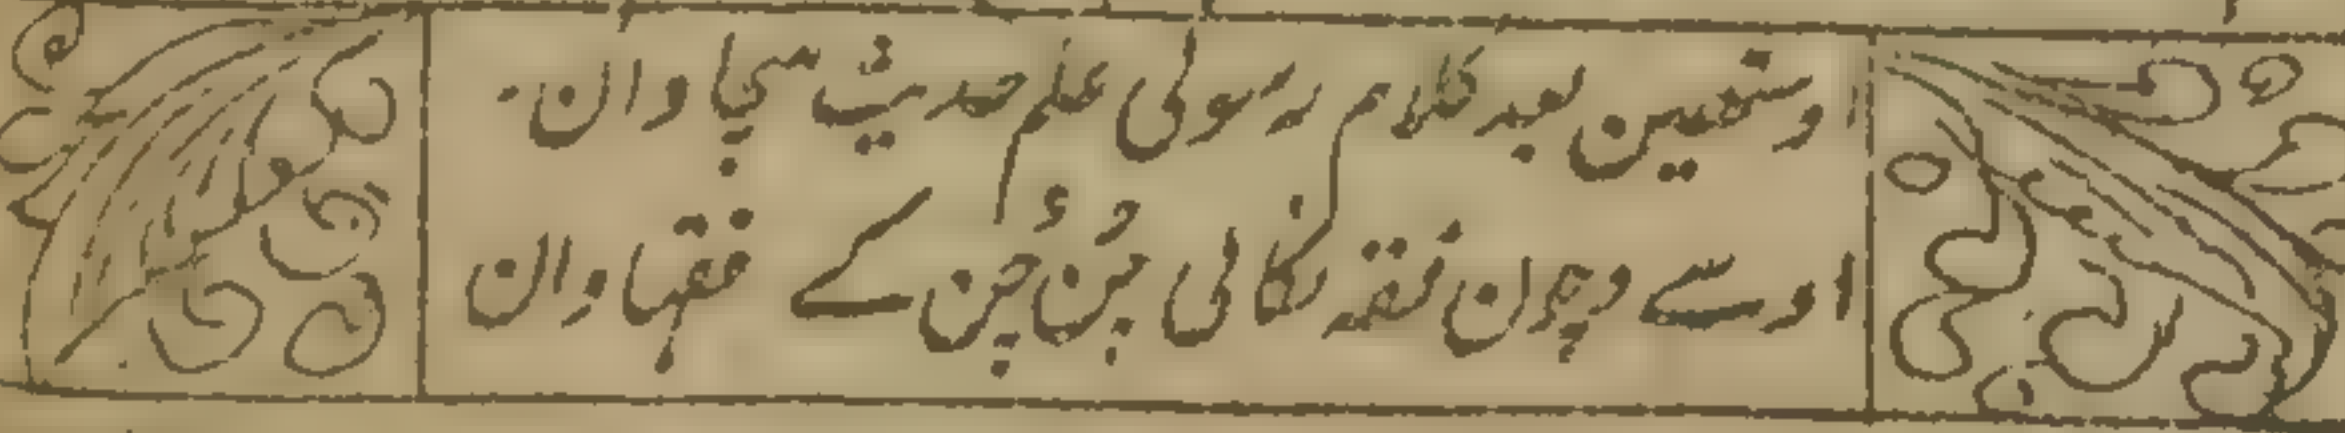 اوستھین بعد کلام رسولی علم حدیث سچا وان
اوسے وچون فقہ نکالی چُن چُن کے فقہا وان